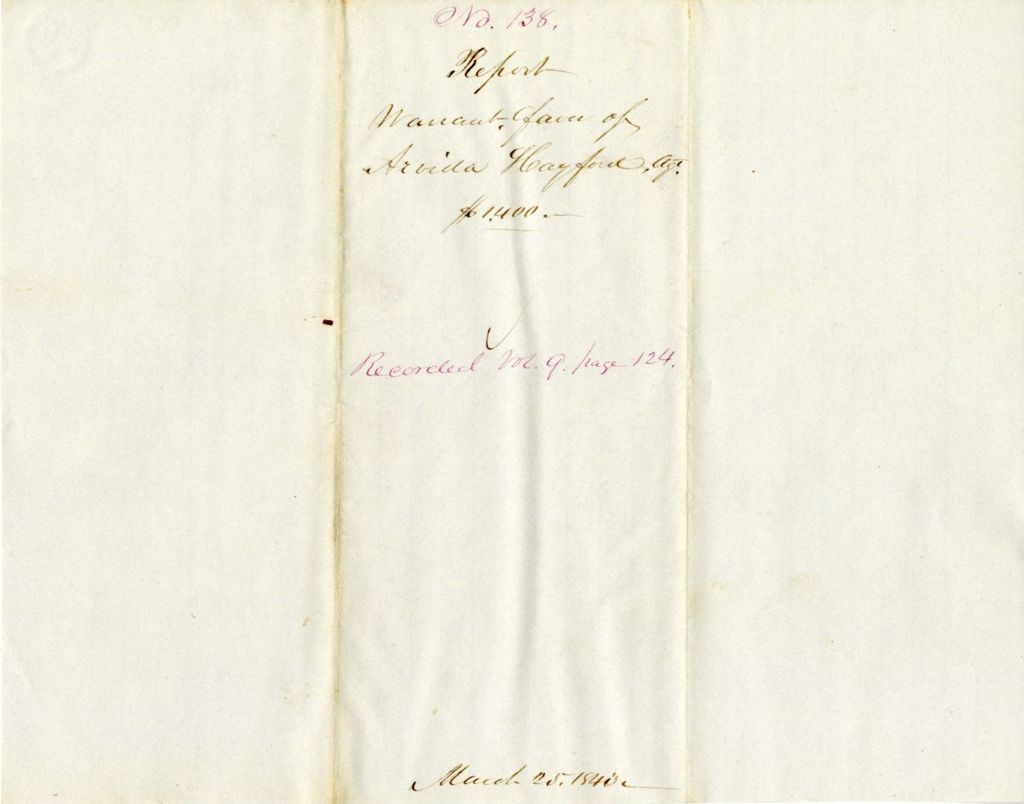 No. 138.
Report
Warrant, favor of
Arvida Hayford, Agt.
$1400.—
Recorded Vol. 9. page 124.
March 25. 1843